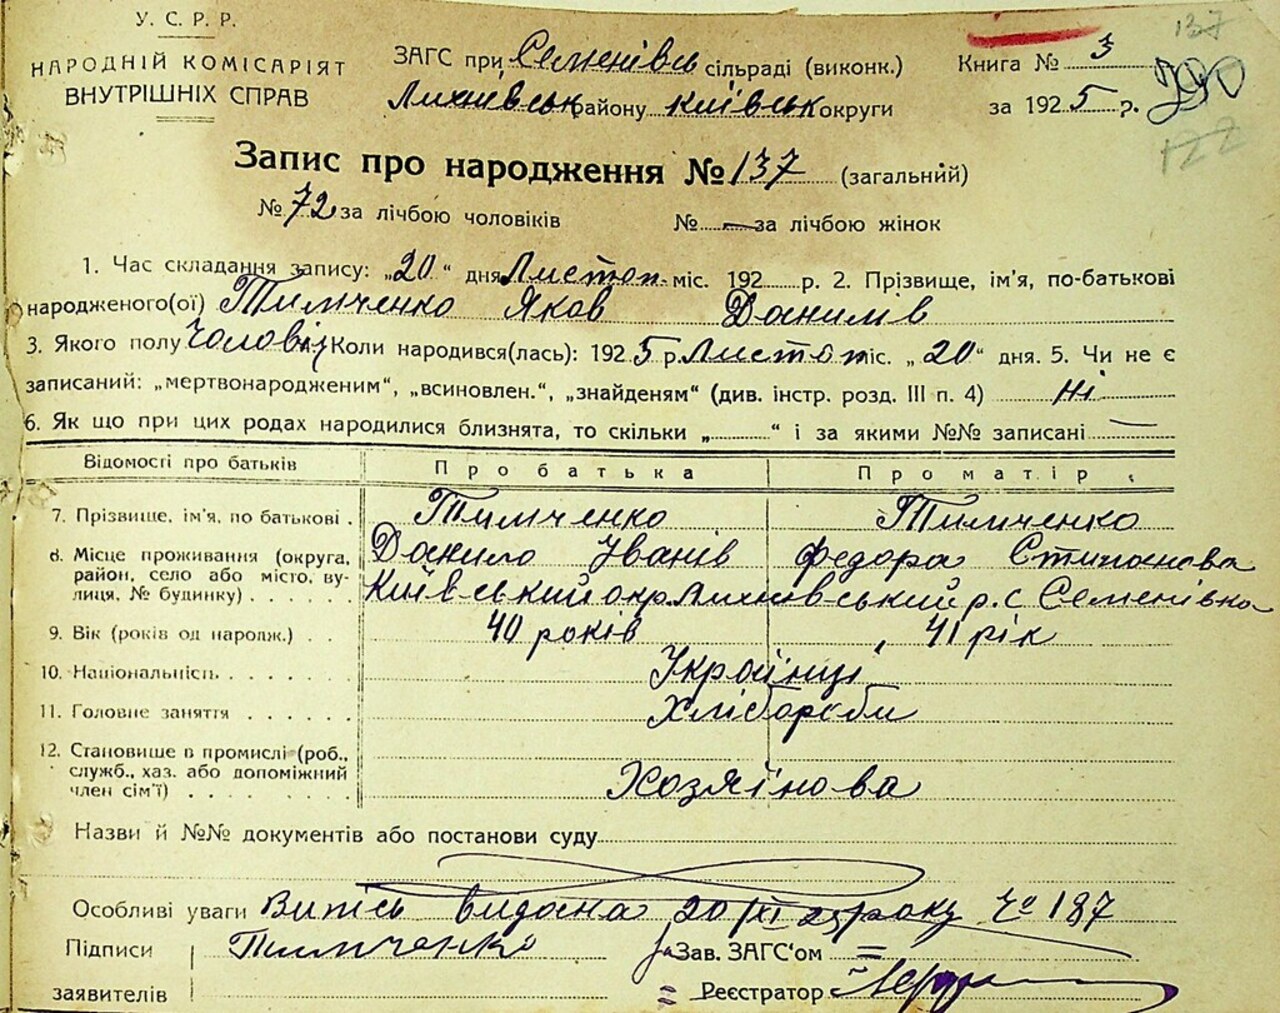 У. С. Р. Р.
НАРОДНІЙ КОМІСАРІЯТ
ВНУТРІШНІХ СПРАВ
ЗАГС при Семенівсь сільраді (виконк.)
Лихнівськ району Київськ округи
Книга № 3
за 1925 р.
137
390
122
Запис про народження № 137 (загальний)
№ 72 за лічбою чоловіків № — за лічбою жінок
1. Час складання запису: „20“ дня Листоп. міс. 192 р. 2. Прізвище, ім'я, по-батькові
народженого(ої) Тимченко Яков Данилів
3. Якого полу Чоловіч Коли народився(лась): 1925 р. Листоп міс. „20“ дня. 5. Чи не є
записаний: „мертвонародженим“, „всиновлен.“, „знайденям“ (див. інстр. розд. III п. 4) ні
6. Як що при цих родах народилися близнята, то скільки „ “ і за якими №№ записані —
Відомості про батьків Про батька Про матір
7. Прізвище, ім'я, по батькові . Тимченко Тимченко
Данило Іванів Федора Степанова
8. Місце проживання (округа, район, село або місто, вулиця, № будинку) . . . . . Київський окр. Лихнівський р. с Семенівка
9. Вік (років од народж.) . . 40 років 41 рік
10. Національність . . . . . . Українці
11. Головне заняття . . . . . . Хлібороби
12. Становище в промислі (роб., служб., хаз. або допоміжний член сім'ї) . . . . . . . Хозяїнова
Назви й №№ документів або постанови суду
Особливі уваги Випісь видана 20/XI 25 року № 187
Підписи Тимченко Зав. ЗАГС'ом =
заявителів = Реєстратор